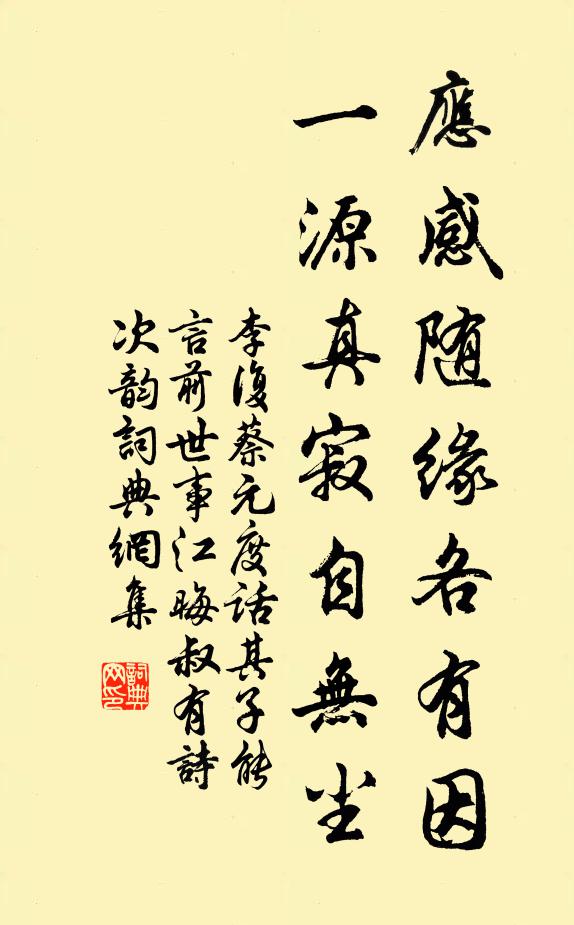 應感随缘各有因
一源真寂自無尘
李復蔡元度話其子能
言前世事江晦叔有詩
次韵詞典網集
詞典网印